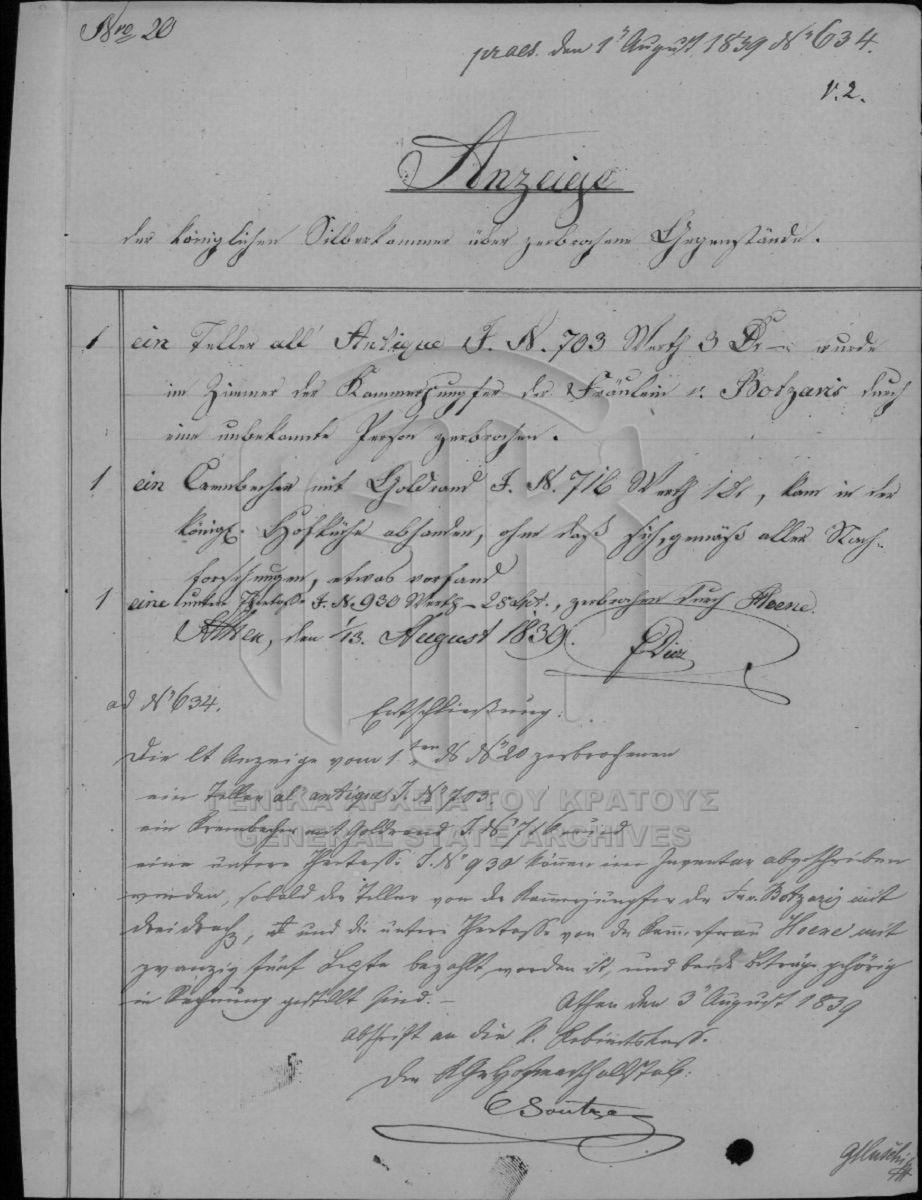 Nro 20
praes. den 1n August 1839 No 634.
V. 2.
Anzeige
der königlichen Silberkammer über zerbrochene Gegenstände.
1 ein Teller all' Antique J. N. 703 Werth 3 Dr – wurde
im Zimmer der Kammerjungfer der Fräulein v. Botzaris durch
eine unbekannte Person zerbrochen.
1 ein Crembecher mit Goldrand J. N. 716 Werth 1 Dr, kam in der
königl. Hofküche abhanden, ohne daß sich, gemäß aller Nach-
forschungen, etwas vorfand
1 eine untere Theetasse J. N. 930 Werth – 25 Lept., zerbrochen durch Hoene.
Athen, den 1/13. August 1839.
ad No 634.
Entschließung:
Die lt Anzeige vom 1ten ds No 20 zerbrochenen
ein Teller al' antique J. No 703
ein Krembecher mit Goldrand J. No 716 und
eine untere Theetasse J. No 930 können im Inventar abgeschrieben
werden, sobald der Teller von der Kammerjungfer der Frl. v. Botzaris mit
drei Drach, und die untere Theetasse von der Kammerfrau Hoene mit
zwanzig fünf Lepta bezahlt worden ist, und beide Beträge gehörig
in Rechnung gestellt sind. –
Athen den 3n August 1839
Abschrift an die k. Kabinetskasse.
Der Hofmarschallstab.
C Soutzo
ΓΕΝΙΚΑ ΑΡΧΕΙΑ ΤΟΥ ΚΡΑΤΟΥΣ
GENERAL STATE ARCHIVES